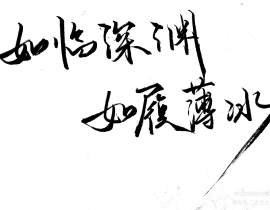 如临深渊
如履薄冰